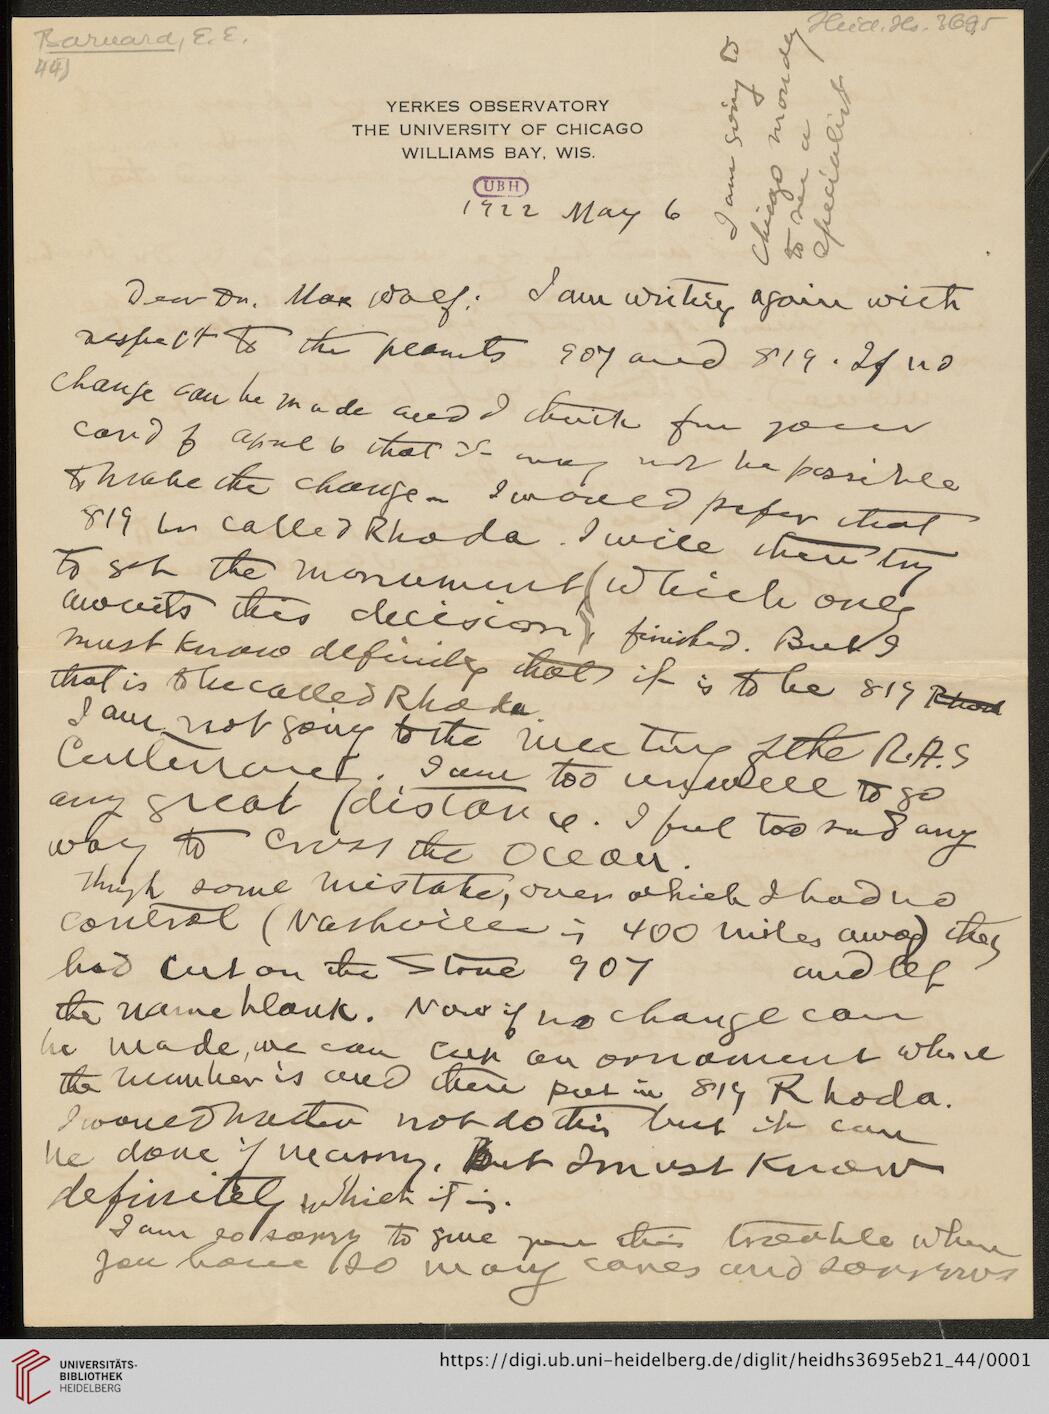 Barnard, E. E.
44)
Heid. Hs. 3695
YERKES OBSERVATORY
THE UNIVERSITY OF CHICAGO
WILLIAMS BAY, WIS.
UBH
1922 May 6
I am going to
Chicago monday
to see a
specialist
Dear Dr. Max Wolf: I am writing again with
respect to the planets 907 and 819. If no
change can be made and I think from your
card of April 6 that it may not be possible
to make the change I would prefer that
819 be called Rhoda. I will then try
to get the monument (which only
awaits this decision) finished. But I
must know definitely that it is to be 819 Rhod
that is to be called Rhoda.
I am not going to the meeting of the R.A.S
Centenary. I am too unwell to go
any great distance. I feel too sad any
way to cross the Ocean.
Through some mistake, over which I had no
control (Nashville is 400 miles away) they
had cut on the Stone 907 and left
the name blank. Now if no change can
be made, we can cut an ornament where
the number is and then put in 819 Rhoda.
I would rather not do this but it can
be done if necessary. But I must know
definitely which it is.
I am so sorry to give you this trouble when
you have so many cares and sorrows
UNIVERSITÄTS-
BIBLIOTHEK
HEIDELBERG
https://digi.ub.uni-heidelberg.de/diglit/heidhs3695eb21_44/0001